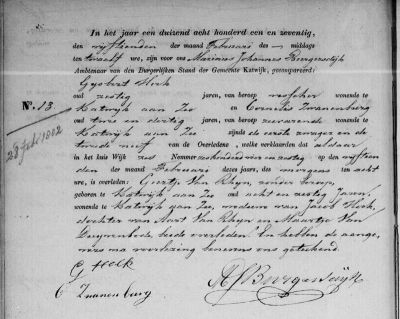 In het jaar een duizend acht honderd een en zeventig,
den vijftienden der maand Februari des middags
ten twaalf ure, zijn voor ons Marinus Johannes Burgersdijk
Ambtenaar van den Burgerlijken Stand der Gemeente Katwijk, gecompareerd:
Gijsbert Hoek
oud zestig jaren, van beroep wonende te
No. 13
Katwijk aan Zee en Cornelis Zwanenburg
oud twee en dertig jaren, van beroep zeevarende wonende te
Katwijk aan Zee zijnde de eerste zwager en de
tweede neef van de Overledene, welke verklaarden dat aldaar
in het huis Wijk zes Nommer op den vijftien
den der maand Februari dezes jaars, des morgens ten acht
ure, is overleden: Geertje Van Rhijn, zonder beroep,
geboren te Katwijk aan Zee oud acht en zestig jaren,
wonende te Katwijk aan Zee, weduwe van Jacob Hoek,
dochter van Aart Van Rhijn en Maartje Van
Duijvenbode, beide overleden. En hebben de aange
vers na voorlezing benevens ons geteekend.
G Hoek
C Zwanenburg
MJBurgersdijk